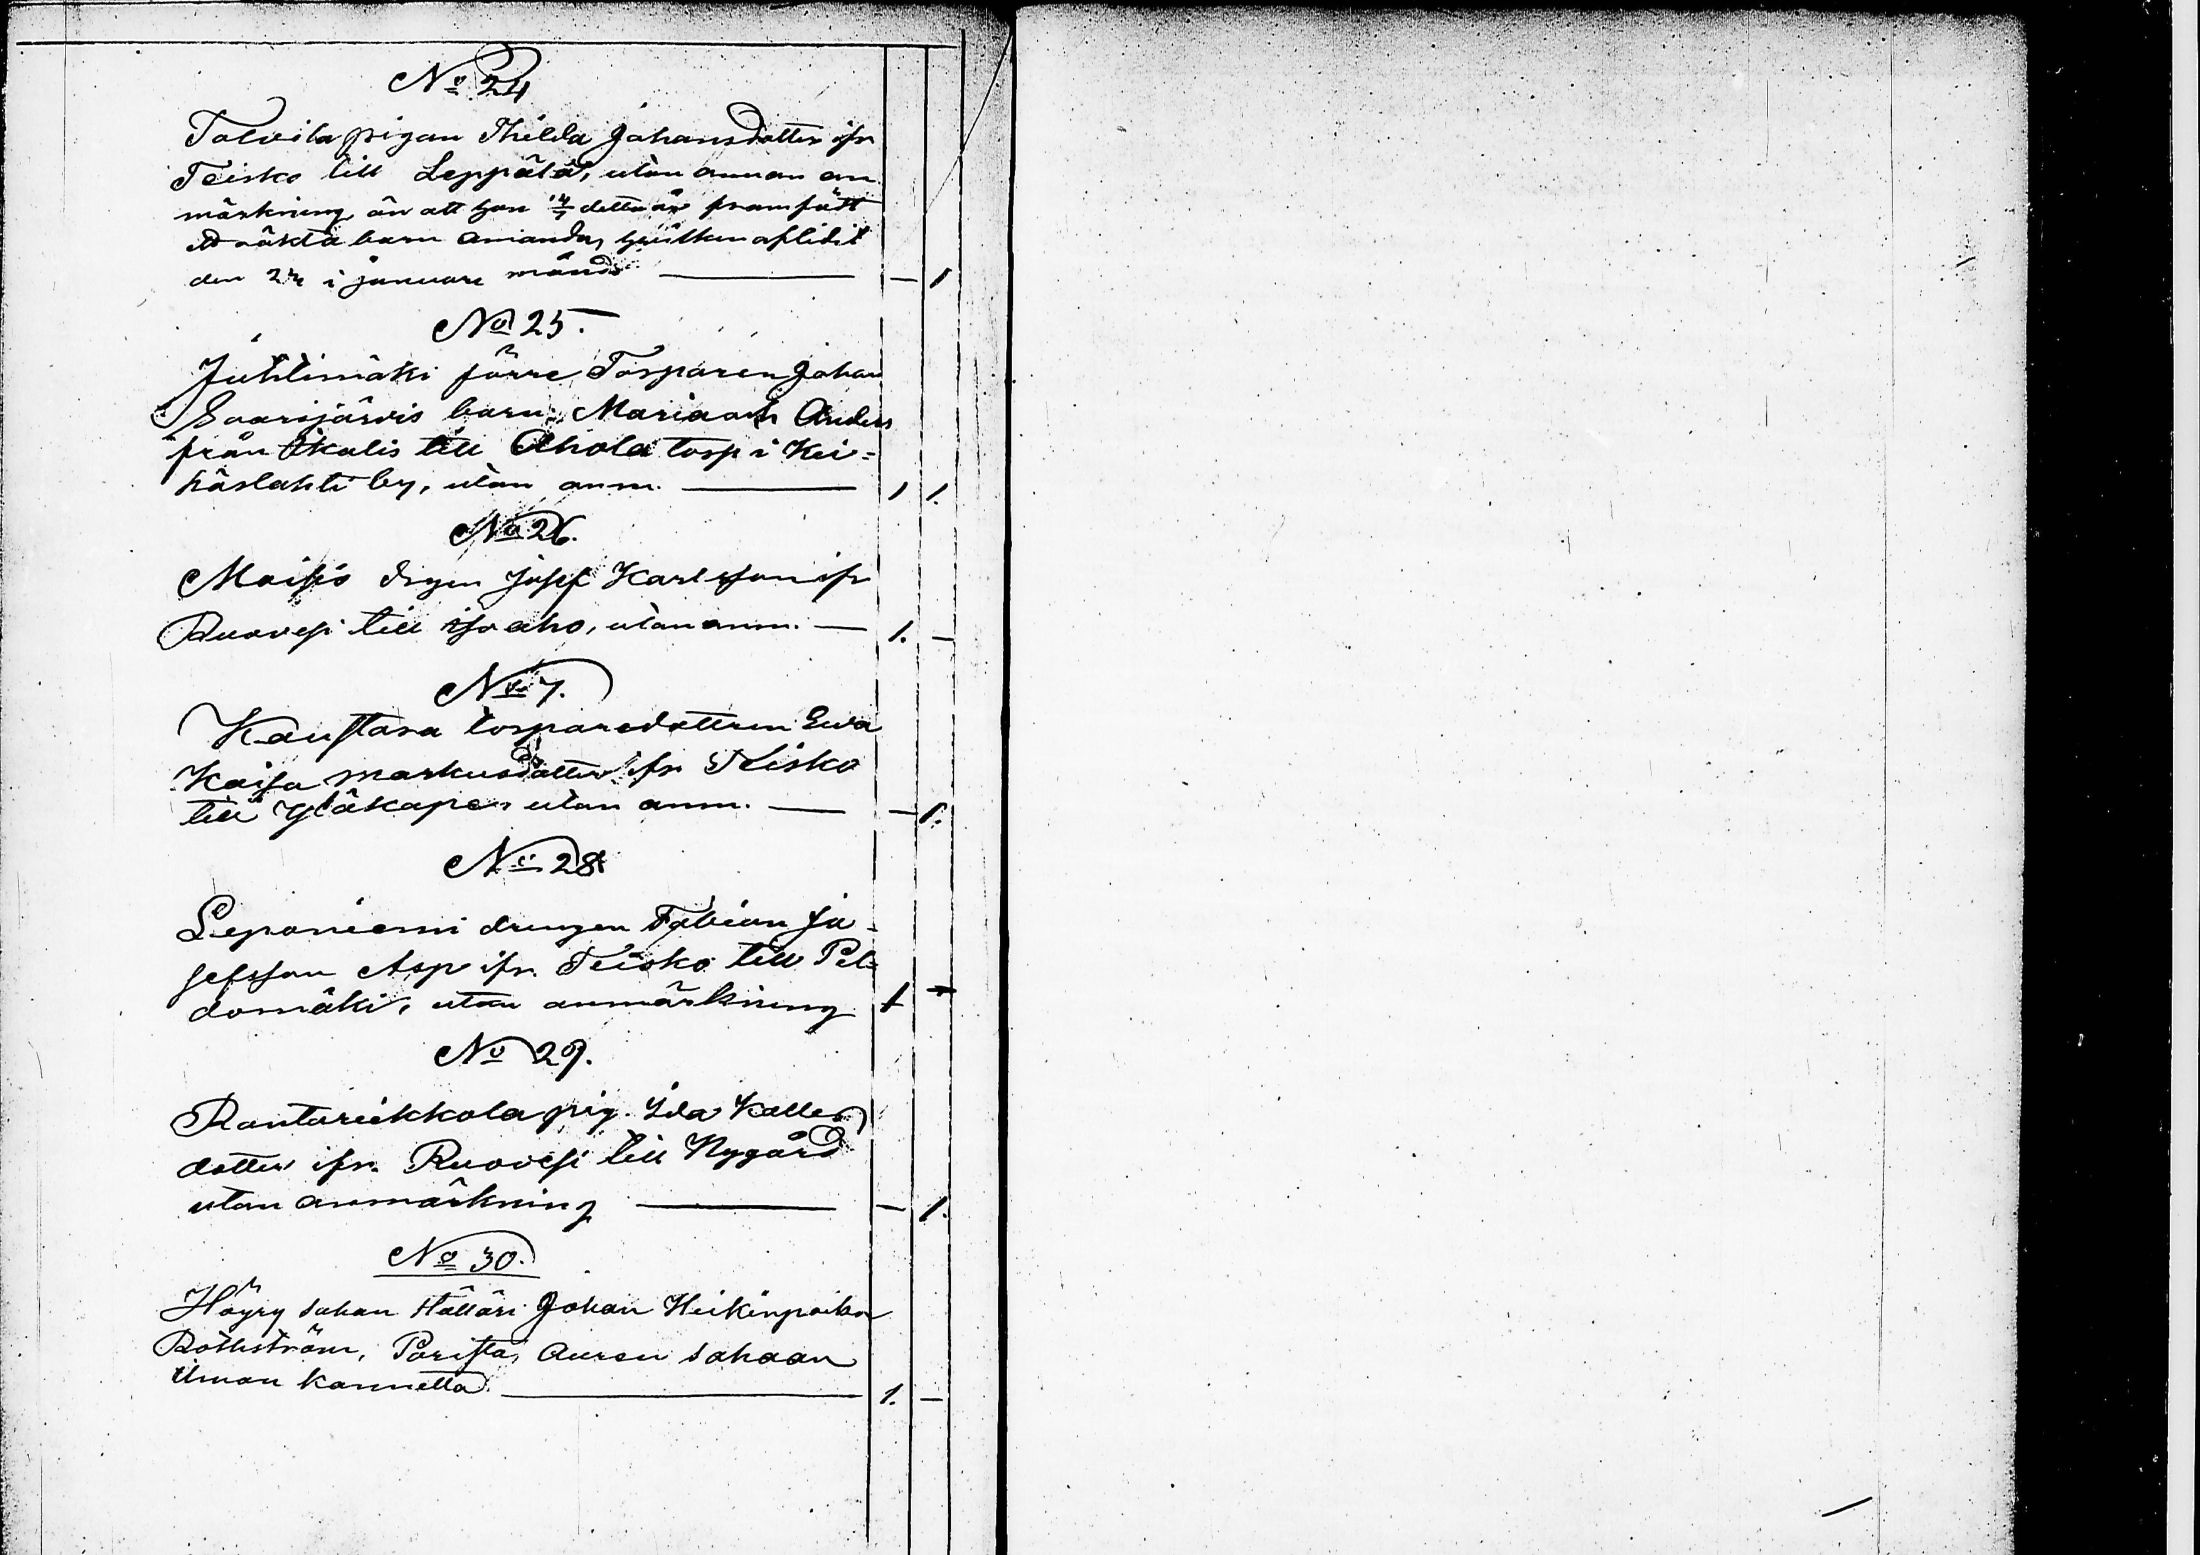 No 24
Tolvila pigan Thilda Johansdotter ifr
Teisko till Leppälä, utan annan an
märkning än att hon 14/1 detta år framfödt
oäkta barn Amanda, hvilken aflidit
den 24 i januari månd — 1
No 25.
Juhtimäki förre Torparen Johan
Saarijärvis barn: Maria och Anders
från Ikalis till Ahola torp i Kei=
häslahti by, utan anm. 1 1.
No 26.
Moisio drgen Josef Karlsson ifr
Ruovesi till Iso aho, utan anm. — 1. —
No 7.
Kaustara torparedottren Eva
Kaisa Markusdotter ifr Teisko
till Yläkape, utan anm. — 1.
No 28
Leponiemi drengen Fabian Jo=
sefsson Asp ifr. Teisko till Pel=
domäki, utan anmärkning 1 —
No 29.
Rantariekkola pig. Ida Kalle
dotter ifr. Ruovesi till Nygård
utan anmärkning — 1.
No 30.
Höyry sahan ställäri Johan Heikinpoika
Rothström, Porista, Auren sahaan
ilman kannetta. 1. —